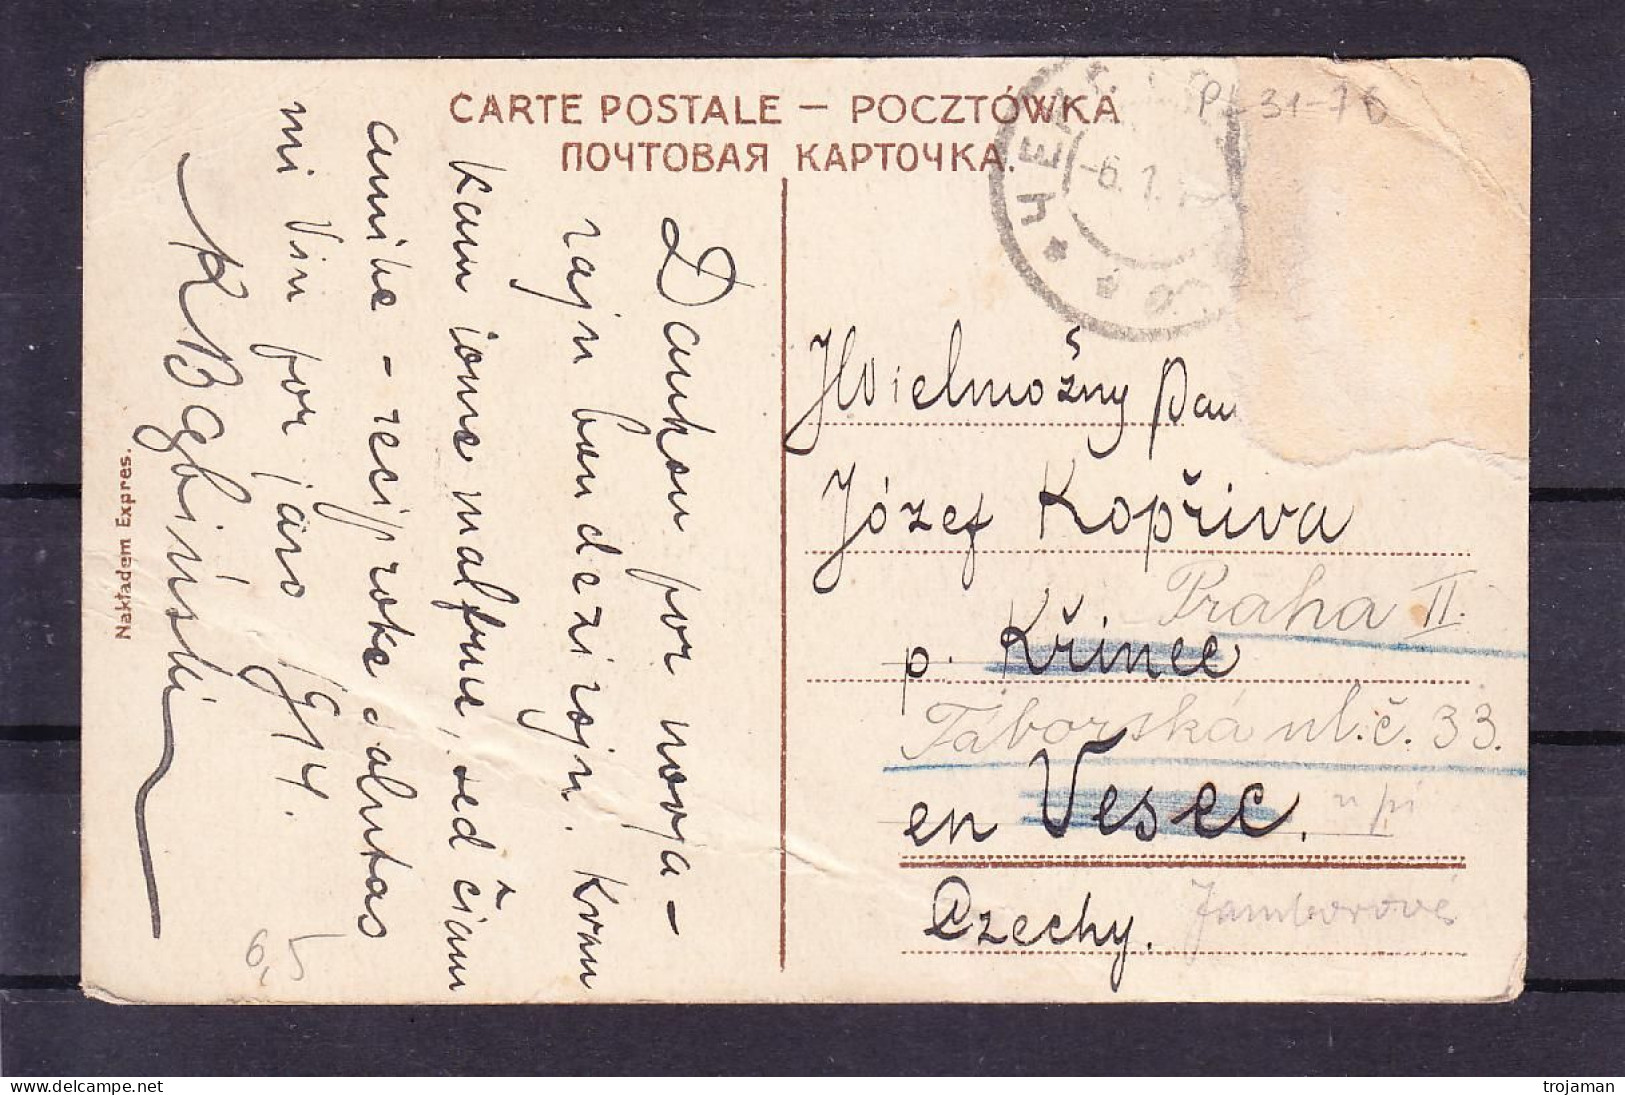 CARTE POSTALE — POCZTÓWKA
ПОЧТОВАЯ КАРТОЧКА.
PL 31-76
-6.1.
Dankon por novja-
rajn bondezirojn. Kvan
kam ionne malfrue, sed ĉiam
amike - reciproke salutas
mi Vin por jaro 1914.
K Bągbiński
Nakładem Expres.
6,5
JWielmożny Pan
Józef Kopřiva
Praha II.
p. Křinec
Táborská ul. č. 33.
en Vesec.
u pí
Czechy.
Jamborové
trojaman